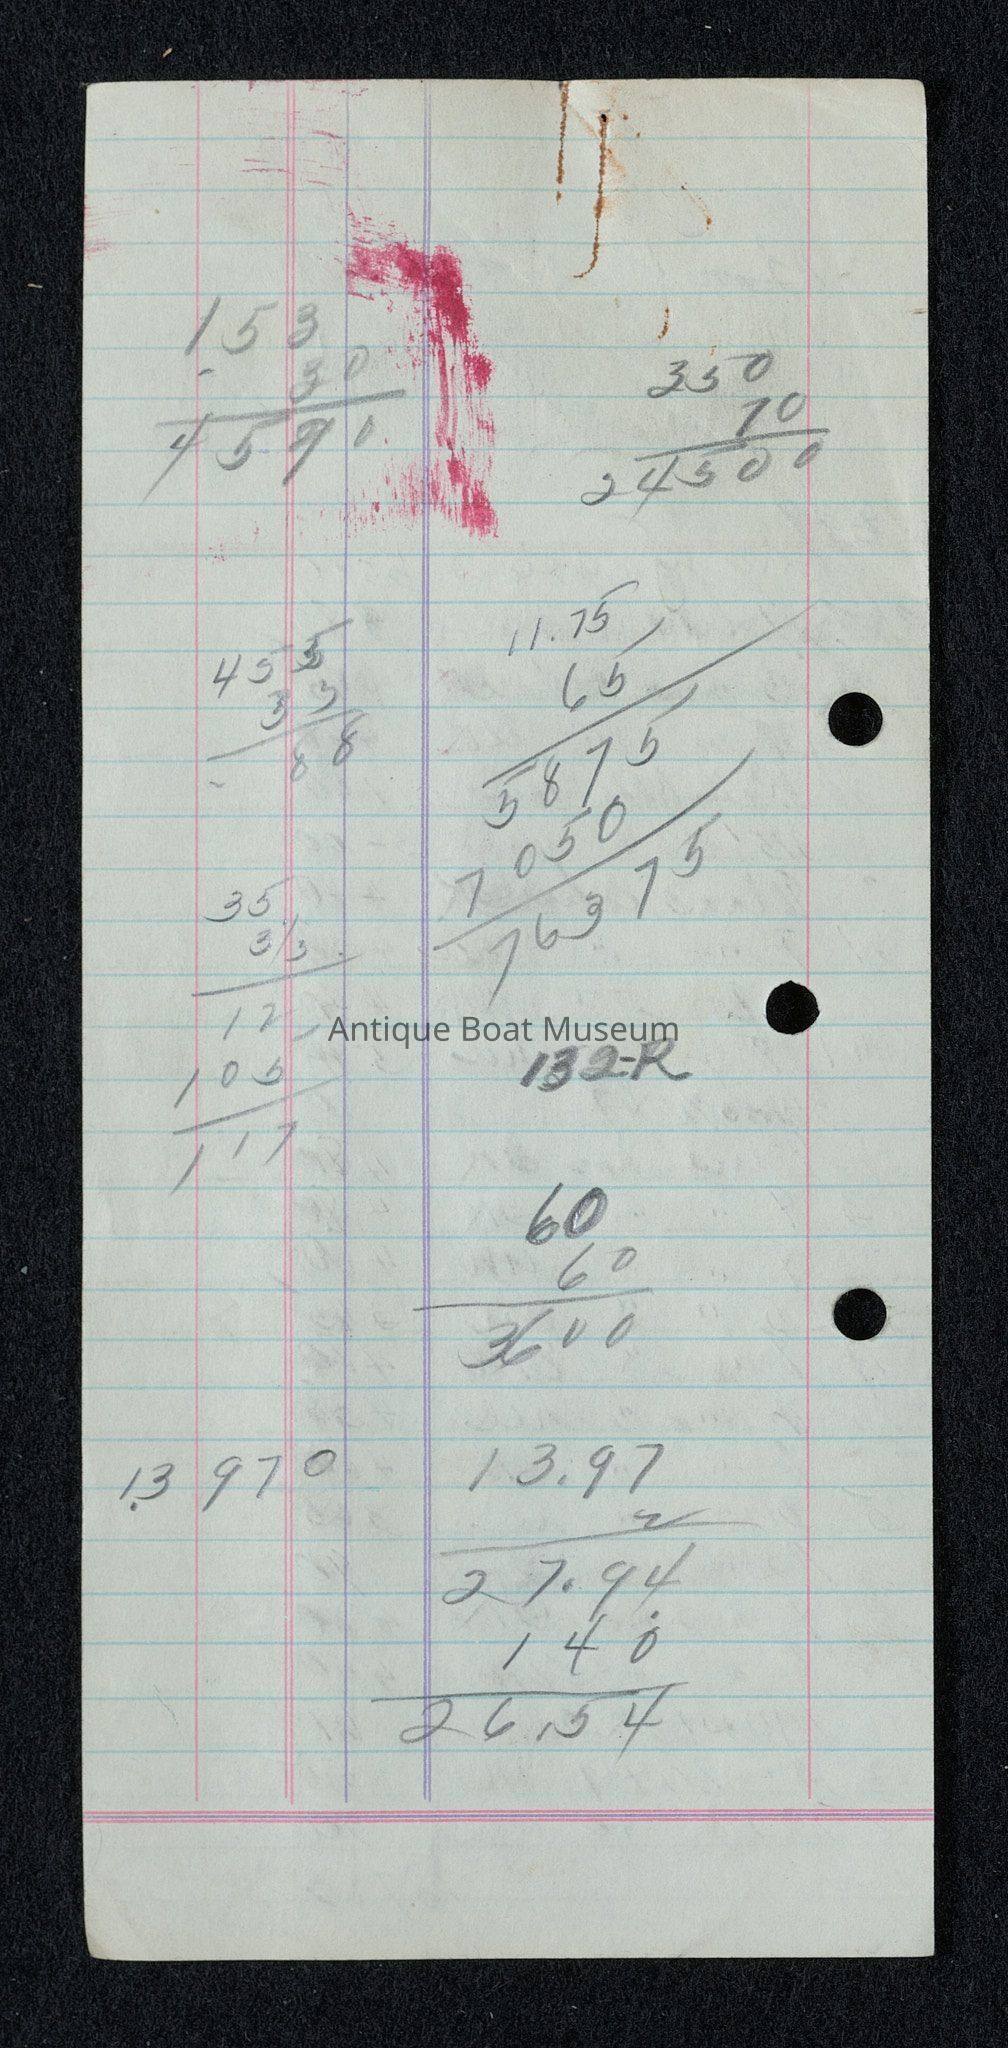 153
30
4590
350
70
24500
455
33
88
11.75
65
5875
7050
76375
35
3/3
12
105
117
Antique Boat Museum
132-R
60
60
3600
13970
13.97
2
27.94
140
26.54